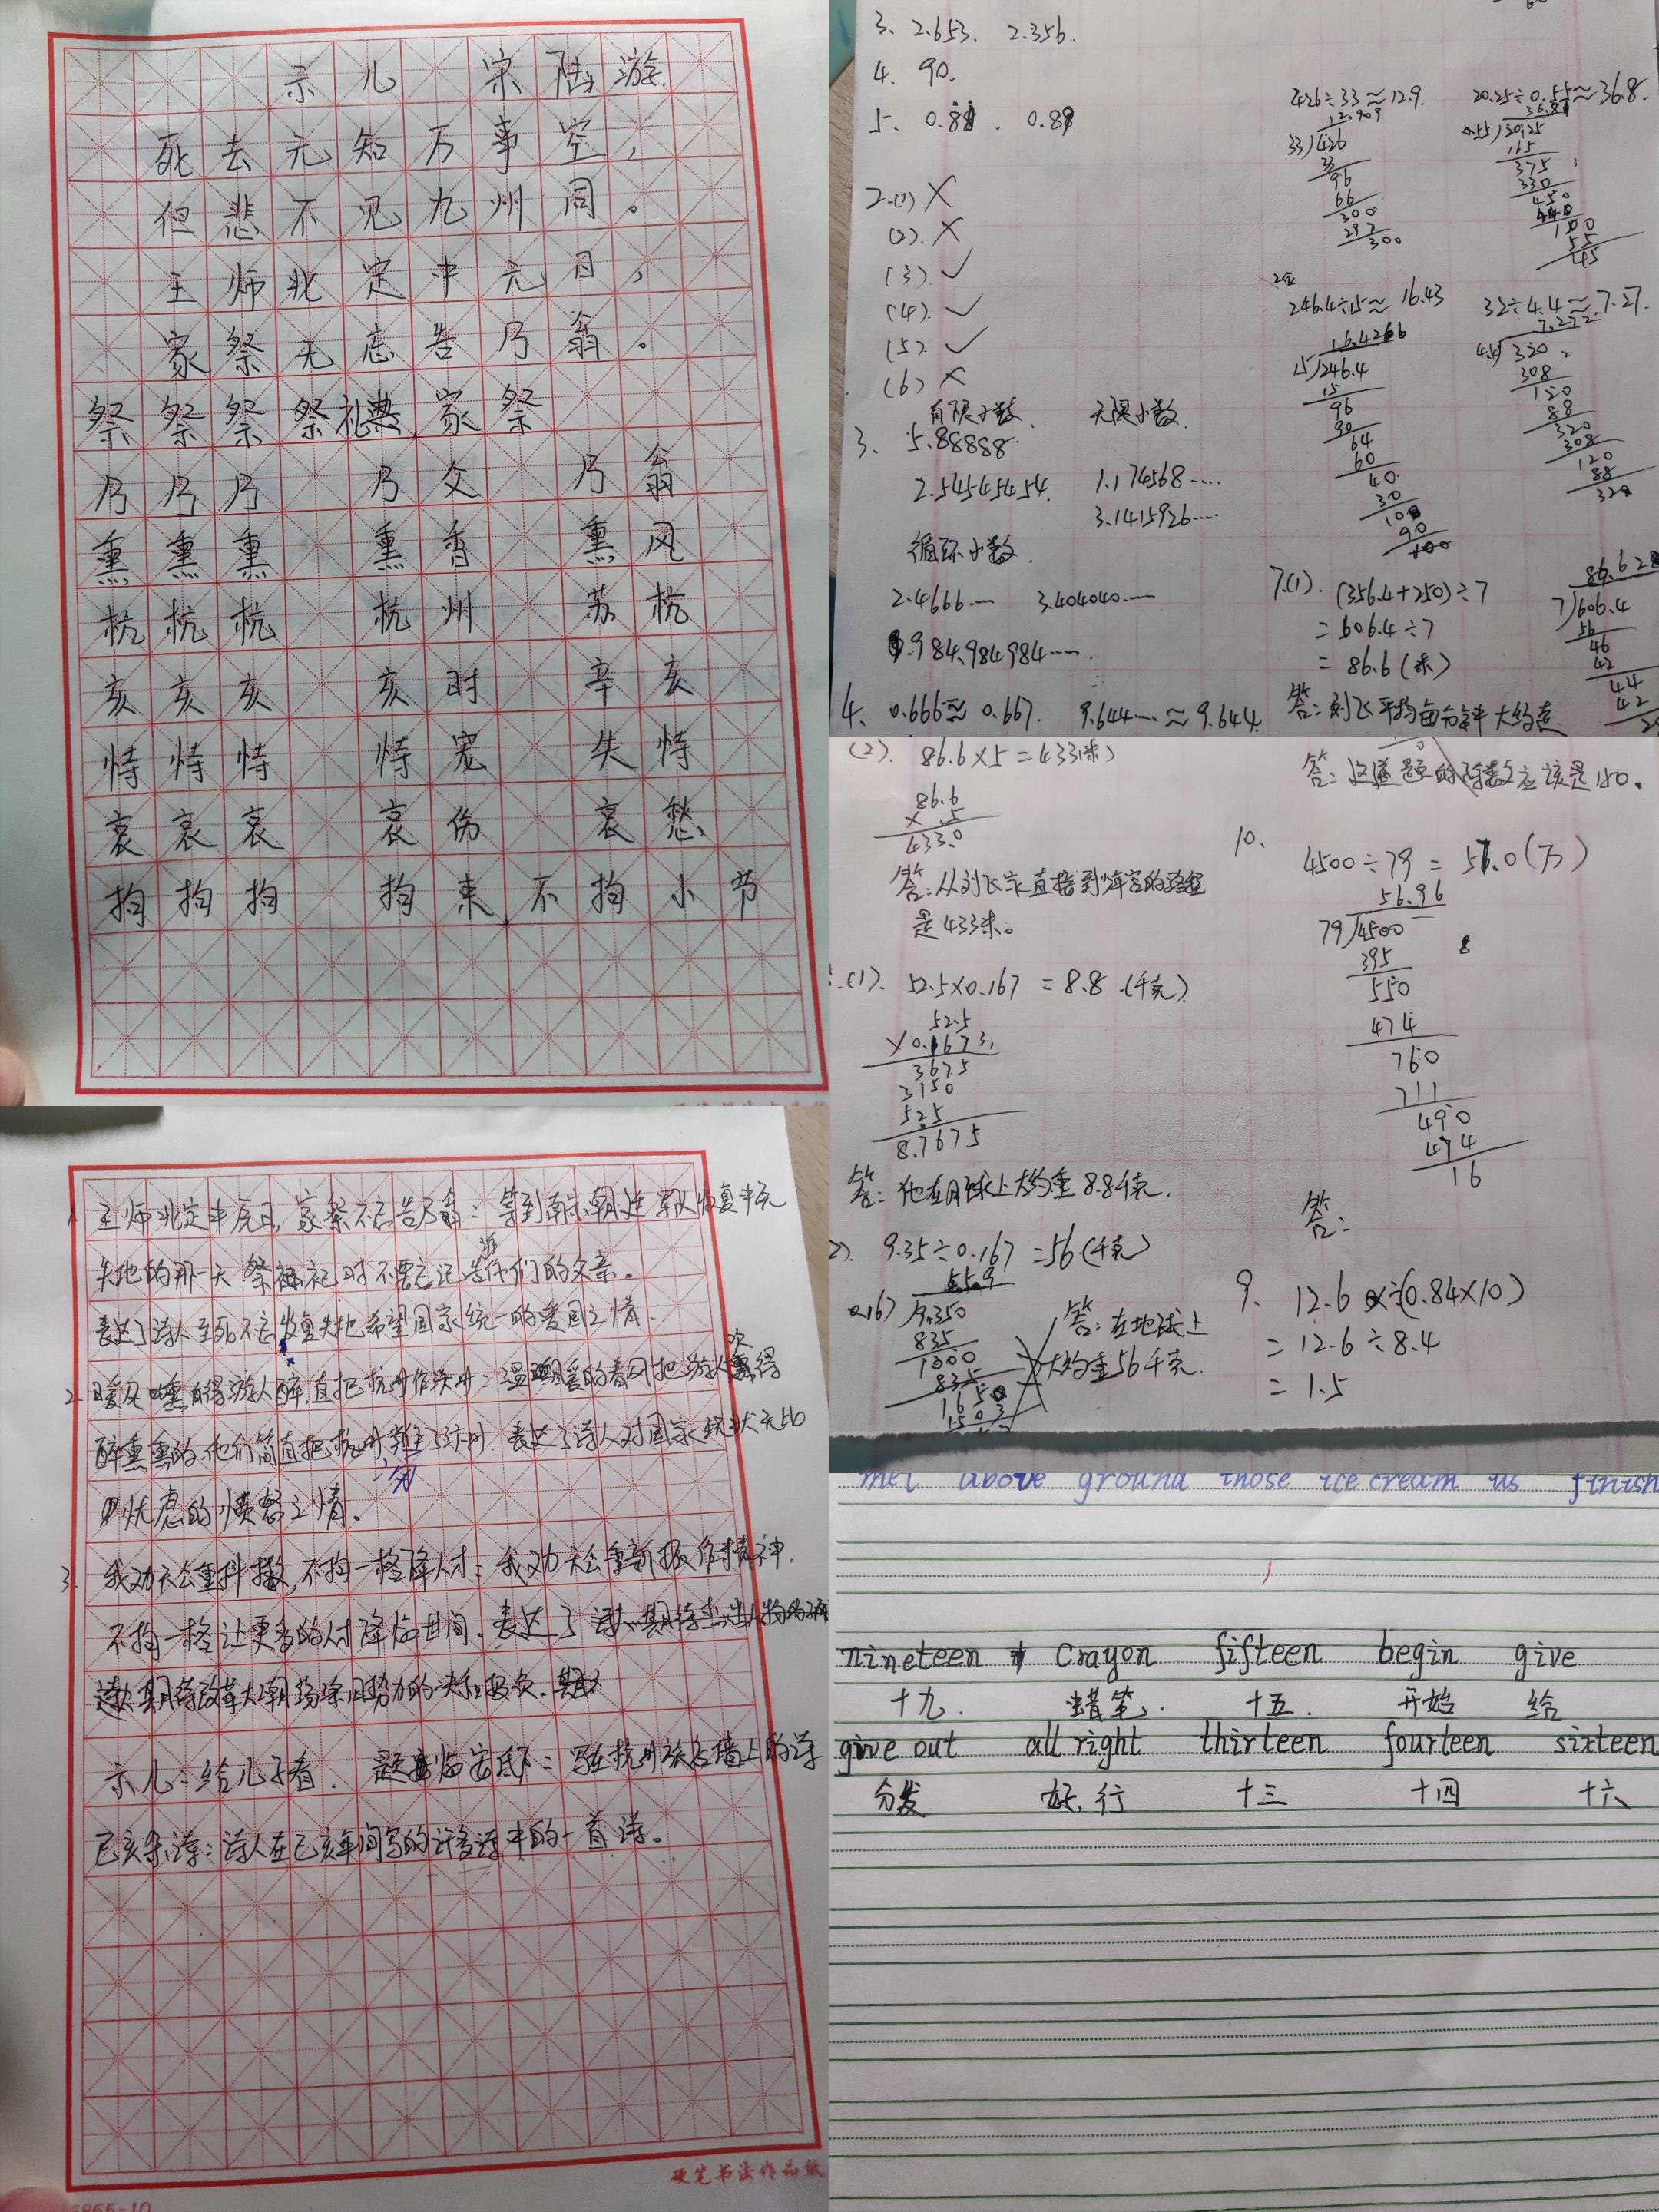 示儿 宋 陆游
死去元知万事空，
但悲不见九州同。
王师北定中元日，
家祭无忘告乃翁。
祭祭祭 祭礼 家祭
乃乃乃 乃父 乃翁
熏熏熏 熏香 熏风
杭杭杭 杭州 苏杭
亥亥亥 亥时 辛亥
恃恃恃 恃宠 失恃
哀哀哀 哀伤 哀愁
拘拘拘 拘束 不拘小节
1. 王师北定中原日，家祭不忘告乃翁：等到南宋朝廷军队恢复中元
失地的那一天 祭祀时不要忘记告诉你们的父亲。
表达了诗人至死不忘收复失地希望国家统一的爱国之情。
2. 暖风熏得游人醉，直把杭州作汴州：温暖的春风把游人吹得
醉熏熏的，他们简直把杭州当了汴州，表达了诗人对国家现状无比
忧虑的愤怒之情。
3. 我劝天公重抖擞，不拘一格降人才：我劝天公重新振作精神，
不拘一格让更多的人才降临世间。表达了
期待改革大朝
示儿：给儿子看． 题临安邸：写在杭州旅店墙上的诗
己亥杂诗：诗人在己亥年间写的许多诗中的一首诗。
硬笔书法作品纸
5865-10
3、2.653. 2.356.
4. 90.
5、
2.(1) ×
(2). ×
(3). ✓
(4). ✓
(5). ✓
(6) ×
有限小数. 无限小数.
3. 5.88888
2.54545454. 1.174568····
3.1415926····
循环小数.
2.4666···· 3.404040····
4. 0.666≈0.667. 9.644···≈9.644.
426÷33≈12.9.
12.909
33)426
33
96
66
300
297
300
20.25÷0.55≈36.8.
165
375
330
450
440
100
55
45
246.4÷15≈16.43
15)246.4
15
96
90
64
60
40
30
100
90
100
32÷4.4≈7.27.
7.272
320
308
120
88
320
308
120
88
320
7.(1). (356.4+250)÷7
=606.4÷7
=86.6(米)
答：刘飞平均每分钟大约走
7)606.4
56
46
42
44
42
(2). 86.6×5=433(米)
86.6
× 5
433.0
答：从刘飞家直接到少年宫的路程
是433米。
(1). 52.5×0.167=8.8.(千克)
52.5
×0.167
3675
3150
525
8.7675
答：他在月球上大约重8.8千克.
9.35÷0.167=56(千克)
55.9
0.167)9.350
835
1000
835
1650
1503
答：在地球上
大约重56千克.
答：这道题的除数应该是150。
10.
4500÷79=57.0(万)
56.96
79)4500
395
550
474
760
711
490
474
16
答：
9. 12.6÷(0.84×10)
=12.6÷8.4
=1.5
met above ground those ice cream us finish
nineteen crayon fifteen begin give
十九. 蜡笔. 十五. 开始 给
give out all right thirteen fourteen sixteen
分发 好，行 十三 十四 十六